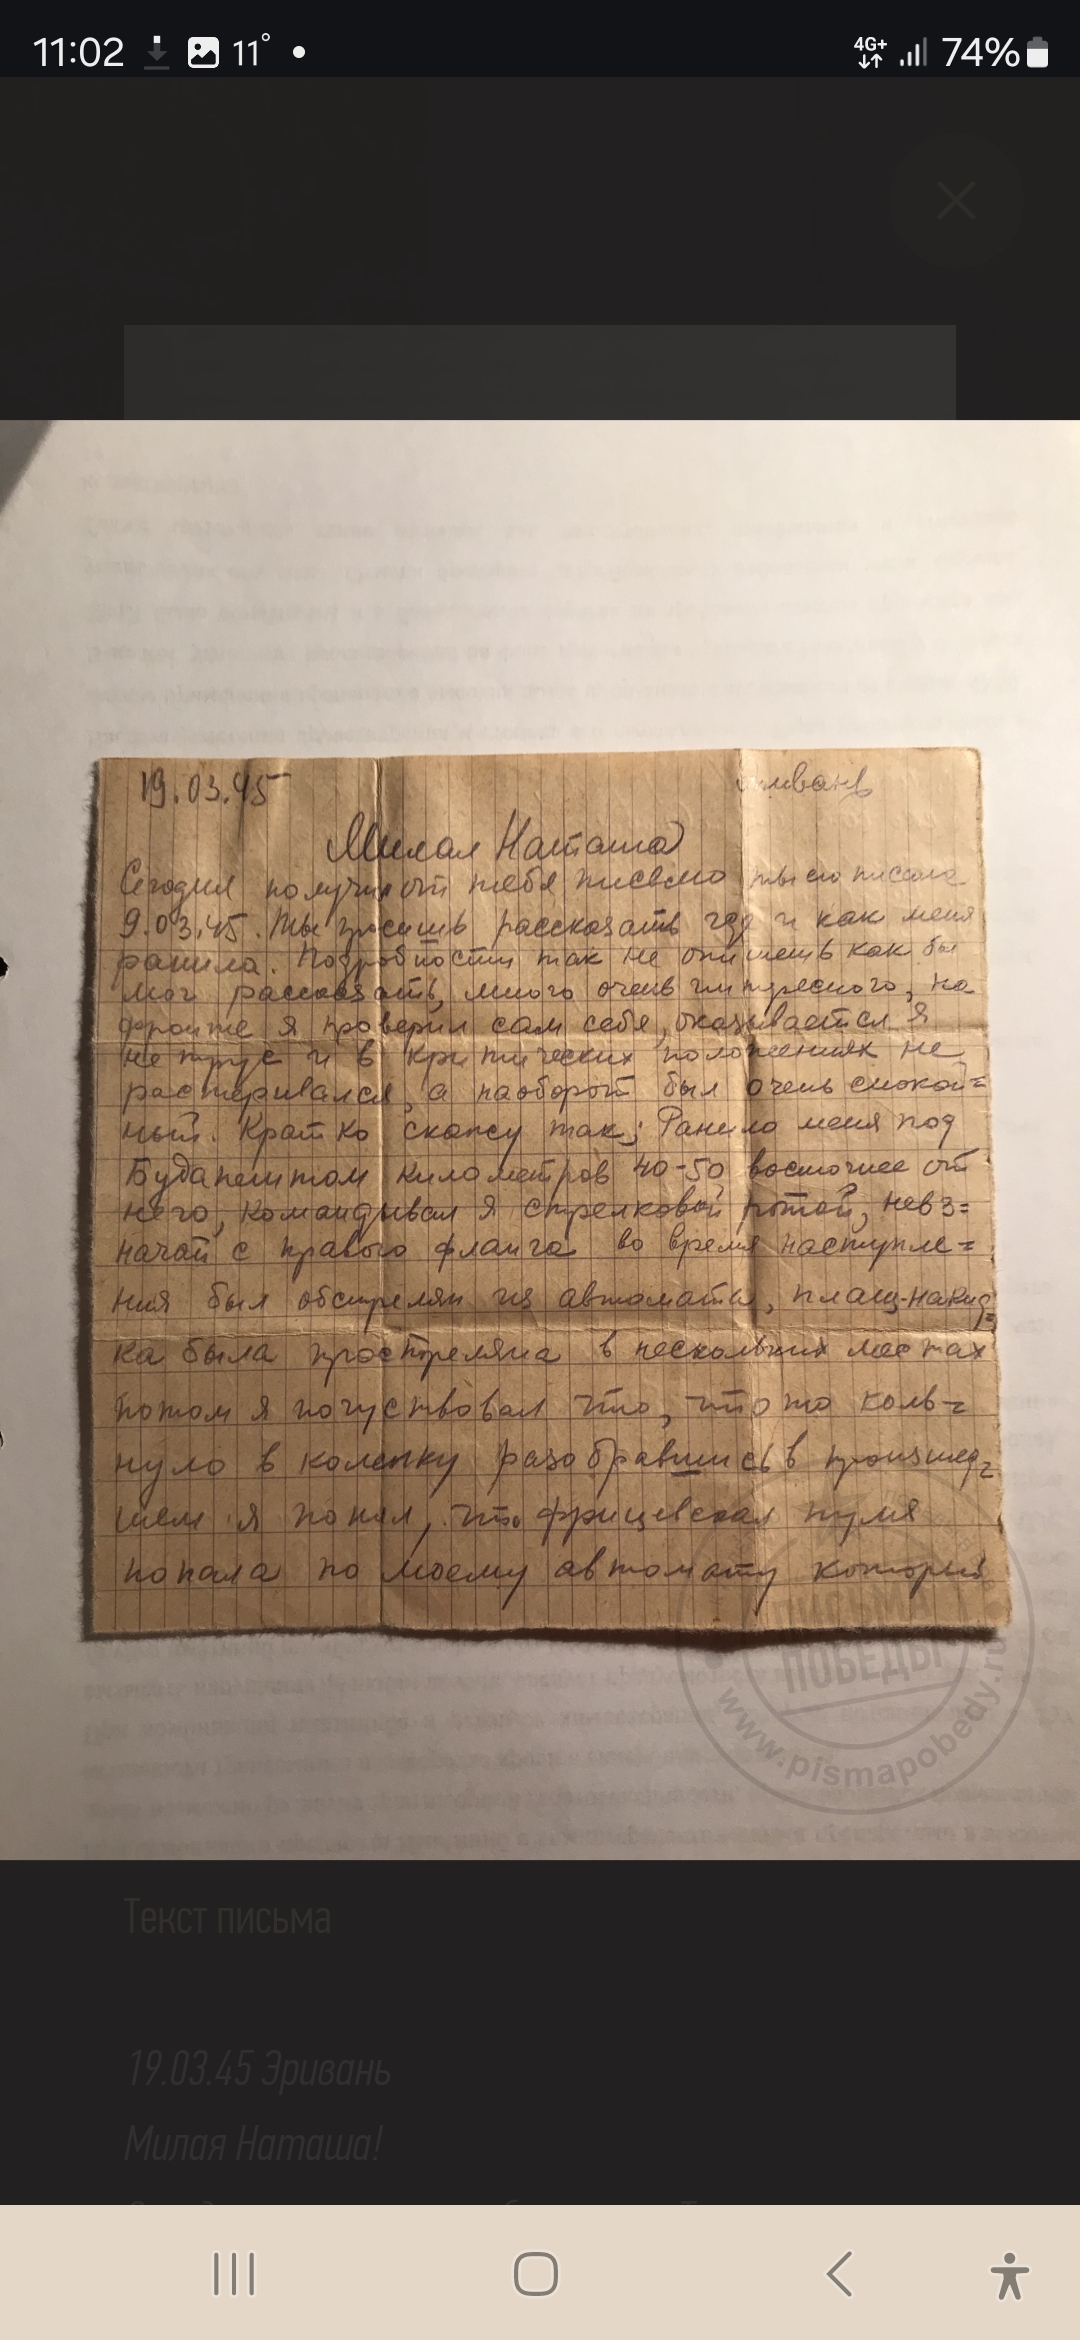 11:02 11° 4G+ 74%
19.03.45 Эривань
Милая Наташа
Сегодня получил от тебя письмо ты его писала
9.03.45. Ты просишь рассказать где и как меня
ранило. Подробности так не опишешь как бы
мог рассказать, много очень интересного, на
фронте я проверил сам себя, оказывается я
не трус и в критических положениях не
растеривался, а наоборот был очень спокой=
ный. Кратко скажу так; Ранило меня под
Будапештом километров 40-50 восточнее от
него, командывал я стрелковой ротой, невз=
начай с правого фланга во время наступле=
ния был обстрелян из автомата, плащ-накид=
ка была простреляна в нескольких местах
потом я почуствовал что, что то коль=
нуло в коленку разобравшись в происшед=
шем я понял, что фрицевская пуля
попала по моему автомату который
ПИСЬМА
ПОБЕДЫ
www.pismapobedy.ru
Текст письма
19.03.45 Эривань
Милая Наташа!